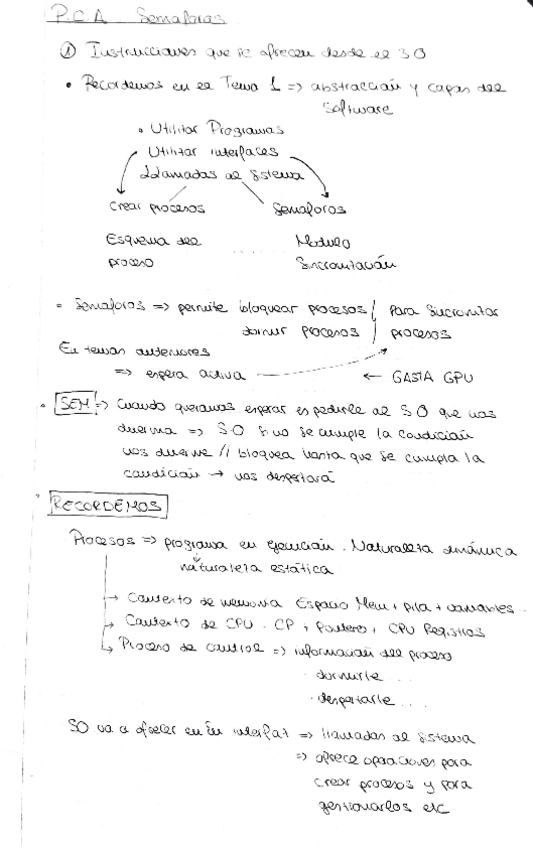 P.C.A Semaforos
① Instrucciones que se ofrecen desde el SO
• Recordemos en el Tema 1 => abstracción y capas del
Software
• Utilizar Programas
Utilizar interfaces
Llamadas al Sistema
Crear procesos Semaforos
Esquema del Modulo
proceso Sincronización
• Semaforos => permite bloquear procesos / Para Sincronizar
dormir procesos / procesos
En temas anteriores
=> espera activa ← GASTA GPU
• SEM => Cuando queramos esperar es pedirle al SO que nos
duerma => SO si no se cumple la condición
nos duerme // bloquea hasta que se cumpla la
condición → nos despertará
• RECORDEMOS
Procesos => programa en ejecución. Naturaleza dinámica
naturaleza estática
→ Contexto de memoria Espacio Mem + pila + variables
→ Contexto de CPU. CP + Punteros + CPU Registros
→ Proceso de control => información del proceso
· dormirle ...
· despertarle ...
SO va a ofrecer en su interfaz => llamadas al Sistema
=> ofrece operaciones para
crear procesos y para
gestionarlos etc